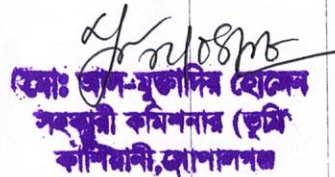 মোঃ আল-মুক্তাদির হোসেন
সহকারী কমিশনার (ভূমি
কাশিয়ানী,গোপালগঞ্জ